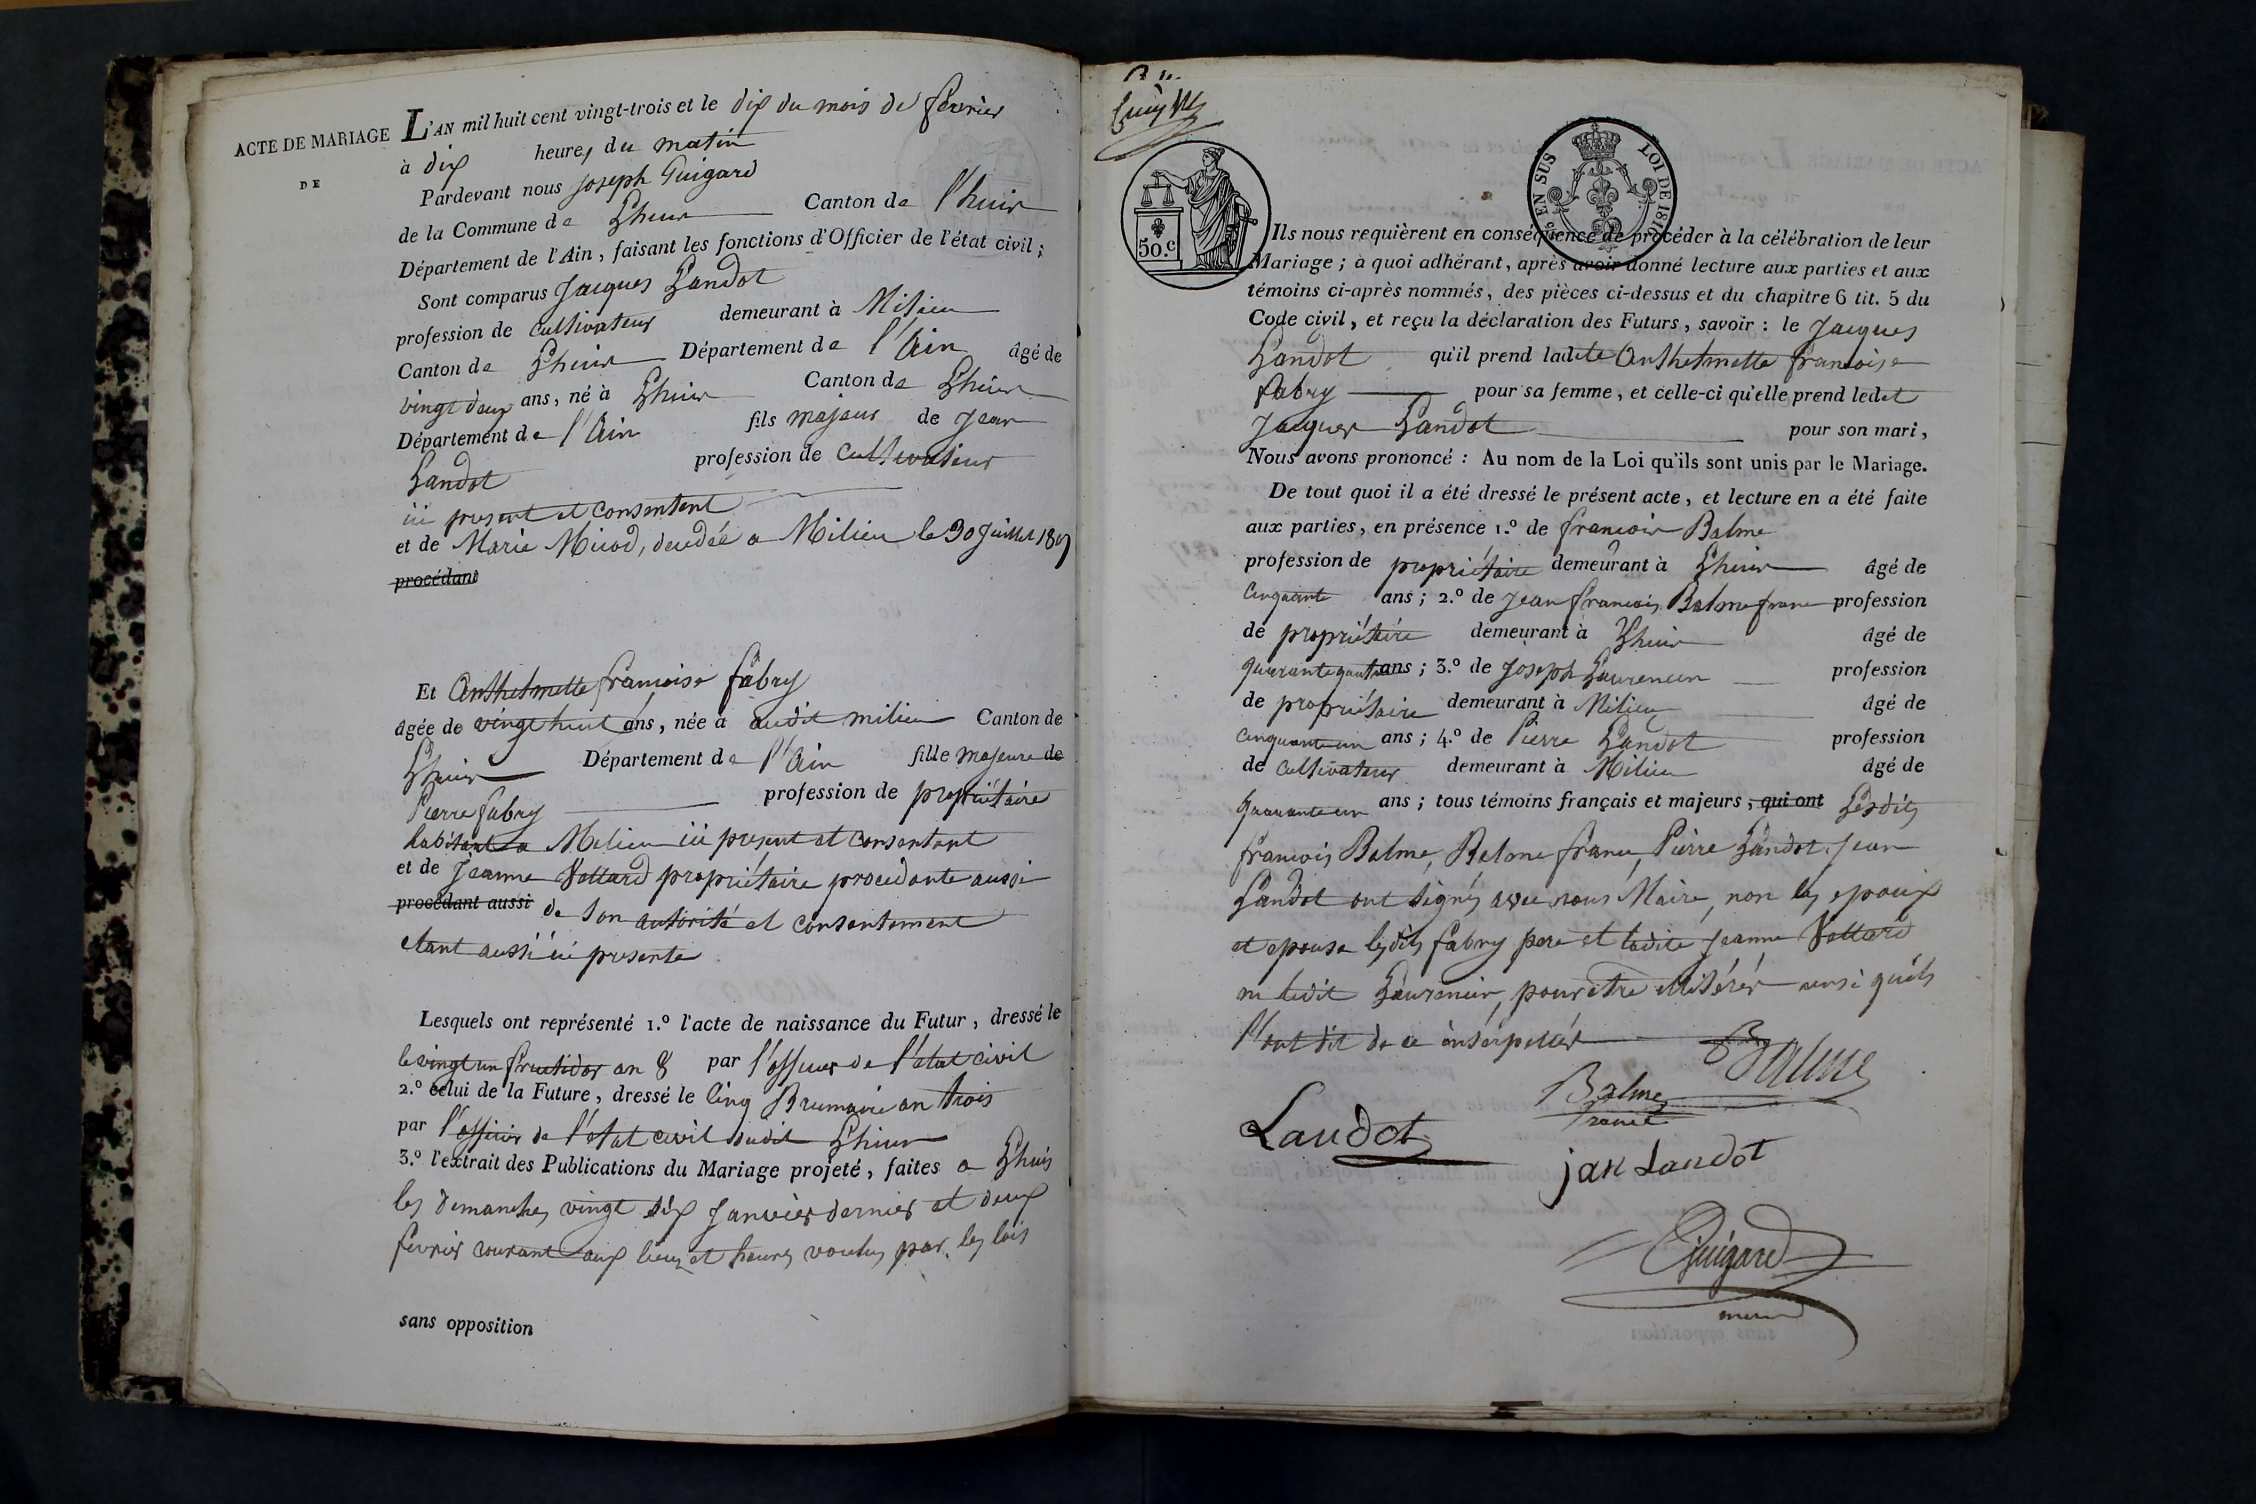 ACTE DE MARIAGE
DE
L'AN mil huit cent vingt-trois et le dix du mois de fevrier
à dix heures du matin
Pardevant nous Joseph Guigard
de la Commune de Lhuis Canton de l'huis
Département de l'Ain, faisant les fonctions d'Officier de l'état civil;
Sont comparus Jacques Landot
profession de cultivateur demeurant à Milieu
Canton de Lhuis Département de l'Ain âgé de
vingt deux ans, né à Lhuis Canton de Lhuis
Département de l'Ain fils majeur de Jean
Landot profession de cultivateur
ici present et consentent
et de Marie Micod, decedée a Milieu le 30 Juillet 1807
procédant
Et Anthelmette francoise fabry
âgée de vingt huit ans, née à audit milieu Canton de
Lhuis Département de l'Ain fille majeure de
Pierre fabry profession de propriétaire
habitant a Milieu ici present et consentant
et de Jeanne Vettard propriétaire procedante aussi
procédant aussi de son autorité et consentement
etant aussi ici presente
Lesquels ont représenté 1.º l'acte de naissance du Futur, dressé le
le vingt un fructidor an 8 par l'officier de l'état civil
2.º celui de la Future, dressé le Cinq Brumaire an trois
par l'officier de l'état civil dudit Lhuis
3.º l'extrait des Publications du Mariage projeté, faites a Lhuis
les dimanches vingt six Janvier dernier et deux
fevrier courant aux lieux et heures voulus par les lois
sans opposition
50.c
EN SUS LOI DE 1816
Ils nous requièrent en conséquence de procéder à la célébration de leur
Mariage; à quoi adhérant, après avoir donné lecture aux parties et aux
témoins ci-après nommés, des pièces ci-dessus et du chapitre 6 tit. 5 du
Code civil, et reçu la déclaration des Futurs, savoir : le Jacques
Landot qu'il prend ladite Anthelmette francoise
fabry pour sa femme, et celle-ci qu'elle prend ledit
Jacques Landot pour son mari,
Nous avons prononcé : Au nom de la Loi qu'ils sont unis par le Mariage.
De tout quoi il a été dressé le présent acte, et lecture en a été faite
aux parties, en présence 1.º de francois Balme
profession de propriétaire demeurant à Lhuis âgé de
Cinquante ans; 2.º de Jean francois Balme franc profession
de propriétaire demeurant à Lhuis âgé de
quarante quatre ans; 3.º de Joseph Laurencin profession
de propriétaire demeurant à Milieu âgé de
cinquante un ans; 4.º de Pierre Landot profession
de cultivateur demeurant à Milieu âgé de
quarante un ans; tous témoins français et majeurs, qui ont Lesdits
francois Balme, Balme france, Pierre Landot, Jean
Landot ont signés avec nous Maire, non les epoux
et epouse lesdits fabry pere et ladite Jeanne Vettard
ni ledit Laurencin, pour etre illitérés ainsi qu'ils
l'ont dit de ce interpellés
Balme
Balme
france
Landot
jan Landot
Guigard